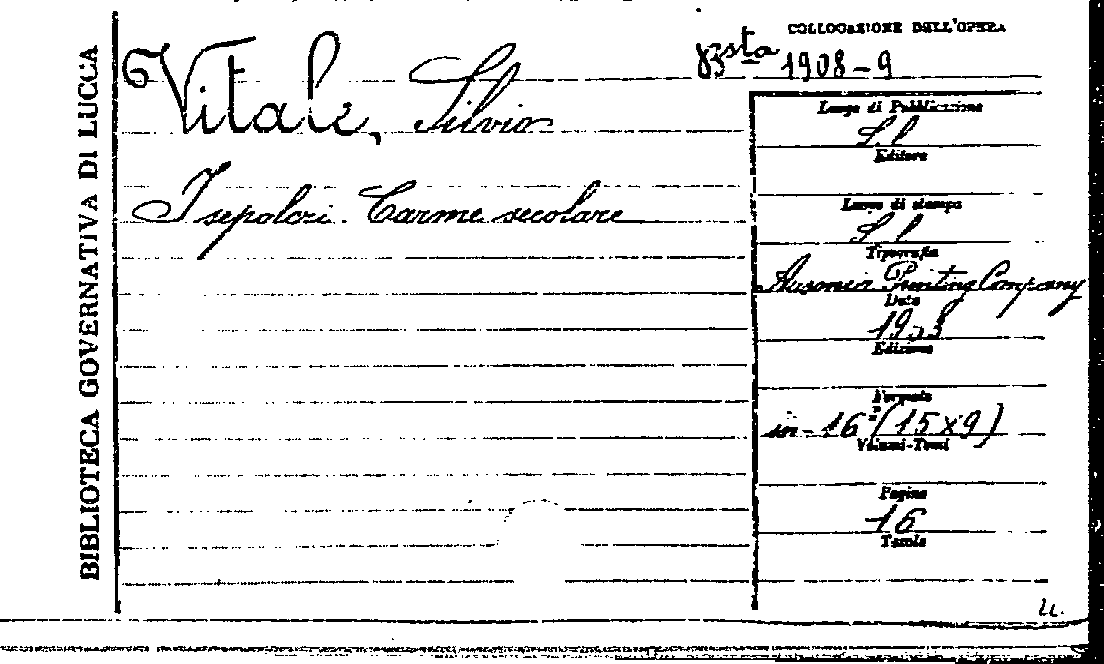 BIBLIOTECA GOVERNATIVA DI LUCCA
COLLOCAZIONE DELL'OPERA
Bsta 1908-9
Vitale, Silvio
I sepolcri. Carme secolare
Luogo di Pubblicazione
S. l.
Editore
Luogo di stampa
S. l.
Tipografia
Ausonia Printing Company
Data
Edizione
Formato
in-16° (15x9)
Volumi-Tomi
Pagine
16
Tavole